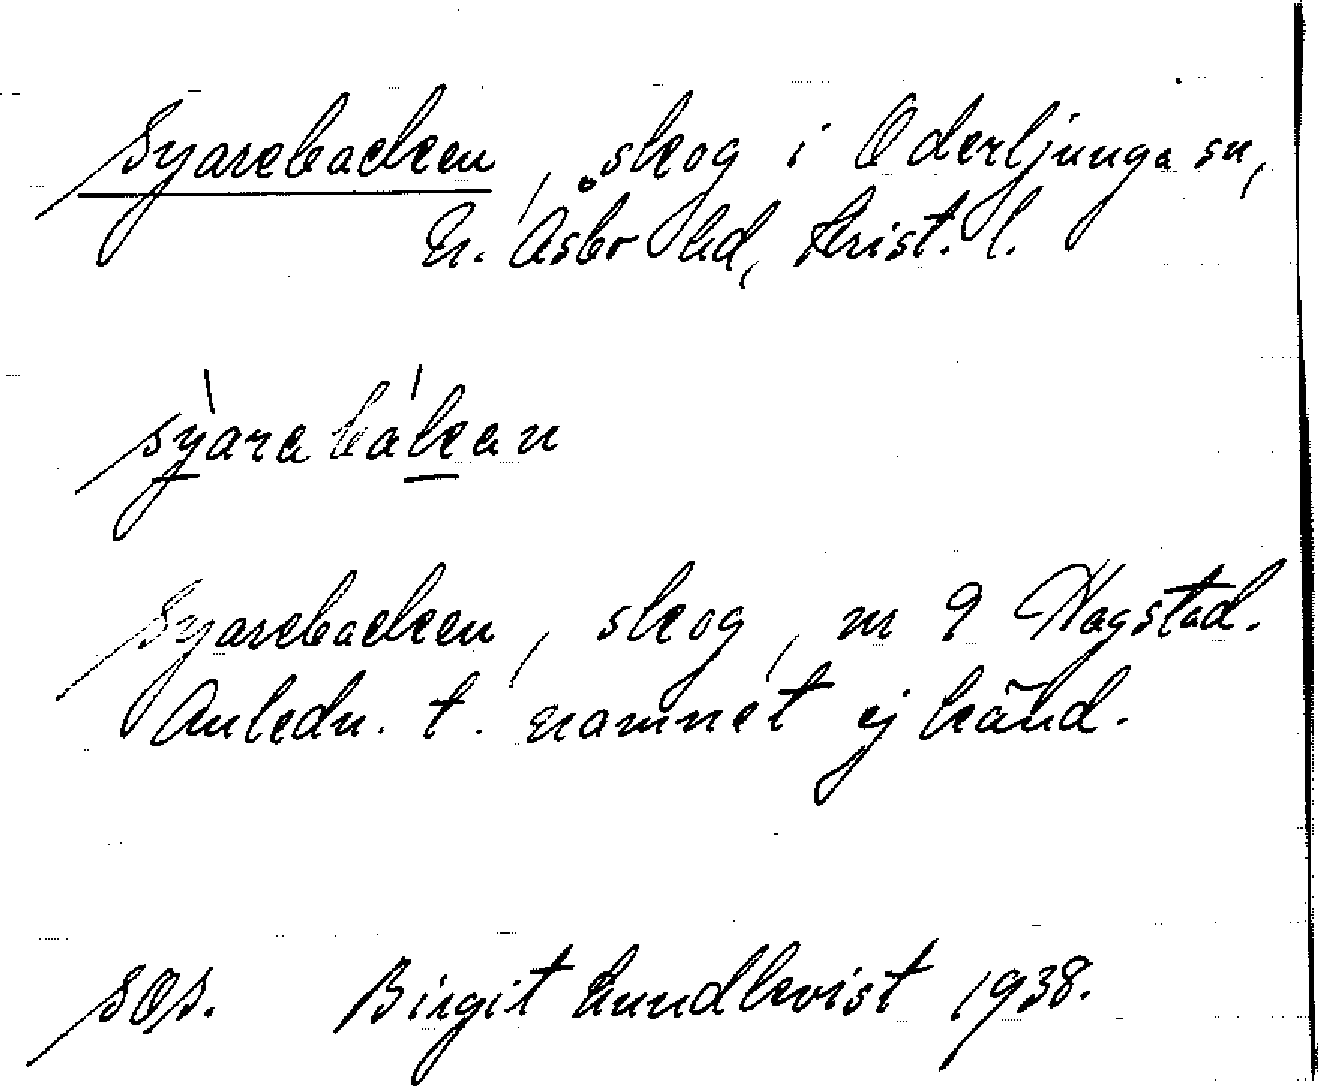 Syarebacken, skog i Oderljunga sn,
N. Åsbo hd, Krist. l.
syarabakan
Syarebacken, skog, nr 9 Hagstad.
Anledn. t. namnet ej känd.
SOS. Birgit Lundkvist 1938.